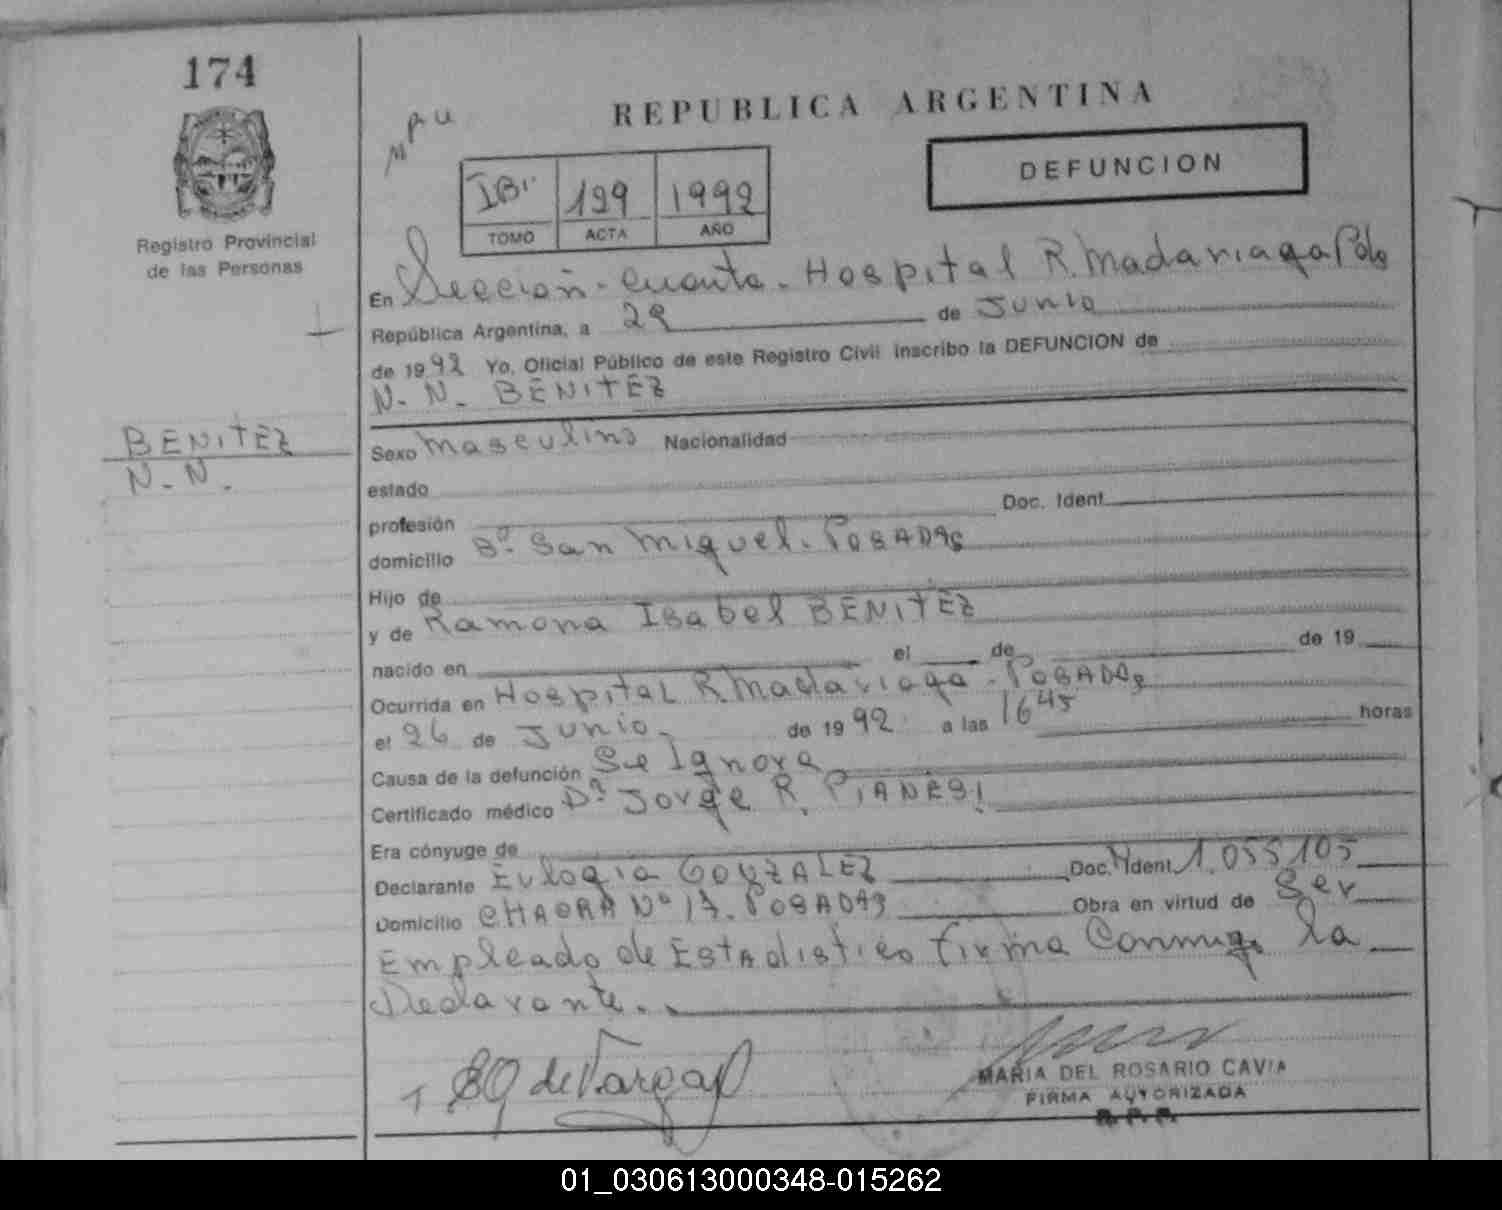 174
Registro Provincial
de las Personas
BENITEZ
N.N.
REPUBLICA ARGENTINA
DEFUNCION
199 1992
TOMO ACTA AÑO
En Sección Cuarta. Hospital R. Madariaga Pdas
República Argentina, a 29 de Junio
de 1992 Yo, Oficial Público de este Registro Civil inscribo la DEFUNCION de
N. N. BENITEZ
Sexo Masculino Nacionalidad
estado
profesión Doc. Ident.
domicilio Bº San Miguel. POSADAS
Hijo de
y de Ramona Isabel BENITEZ
nacido en el de de 19
Ocurrida en Hospital R. Madariaga - POSADAS
el 26 de Junio de 1992 a las 16 45 horas
Causa de la defunción Se Ignora
Certificado médico Dr. Jorge R. PIANESI
Era cónyuge de
Declarante Eulogia GONZALEZ Doc. Ident 1.055105
Domicilio CHACRA Nº 17. POSADAS Obra en virtud de Ser
Empleado de Estadistico firma Conmigo la
Declarante.
de Vargas
MARIA DEL ROSARIO CAVIA
FIRMA AUTORIZADA
R.P.P.
01_030613000348-015262